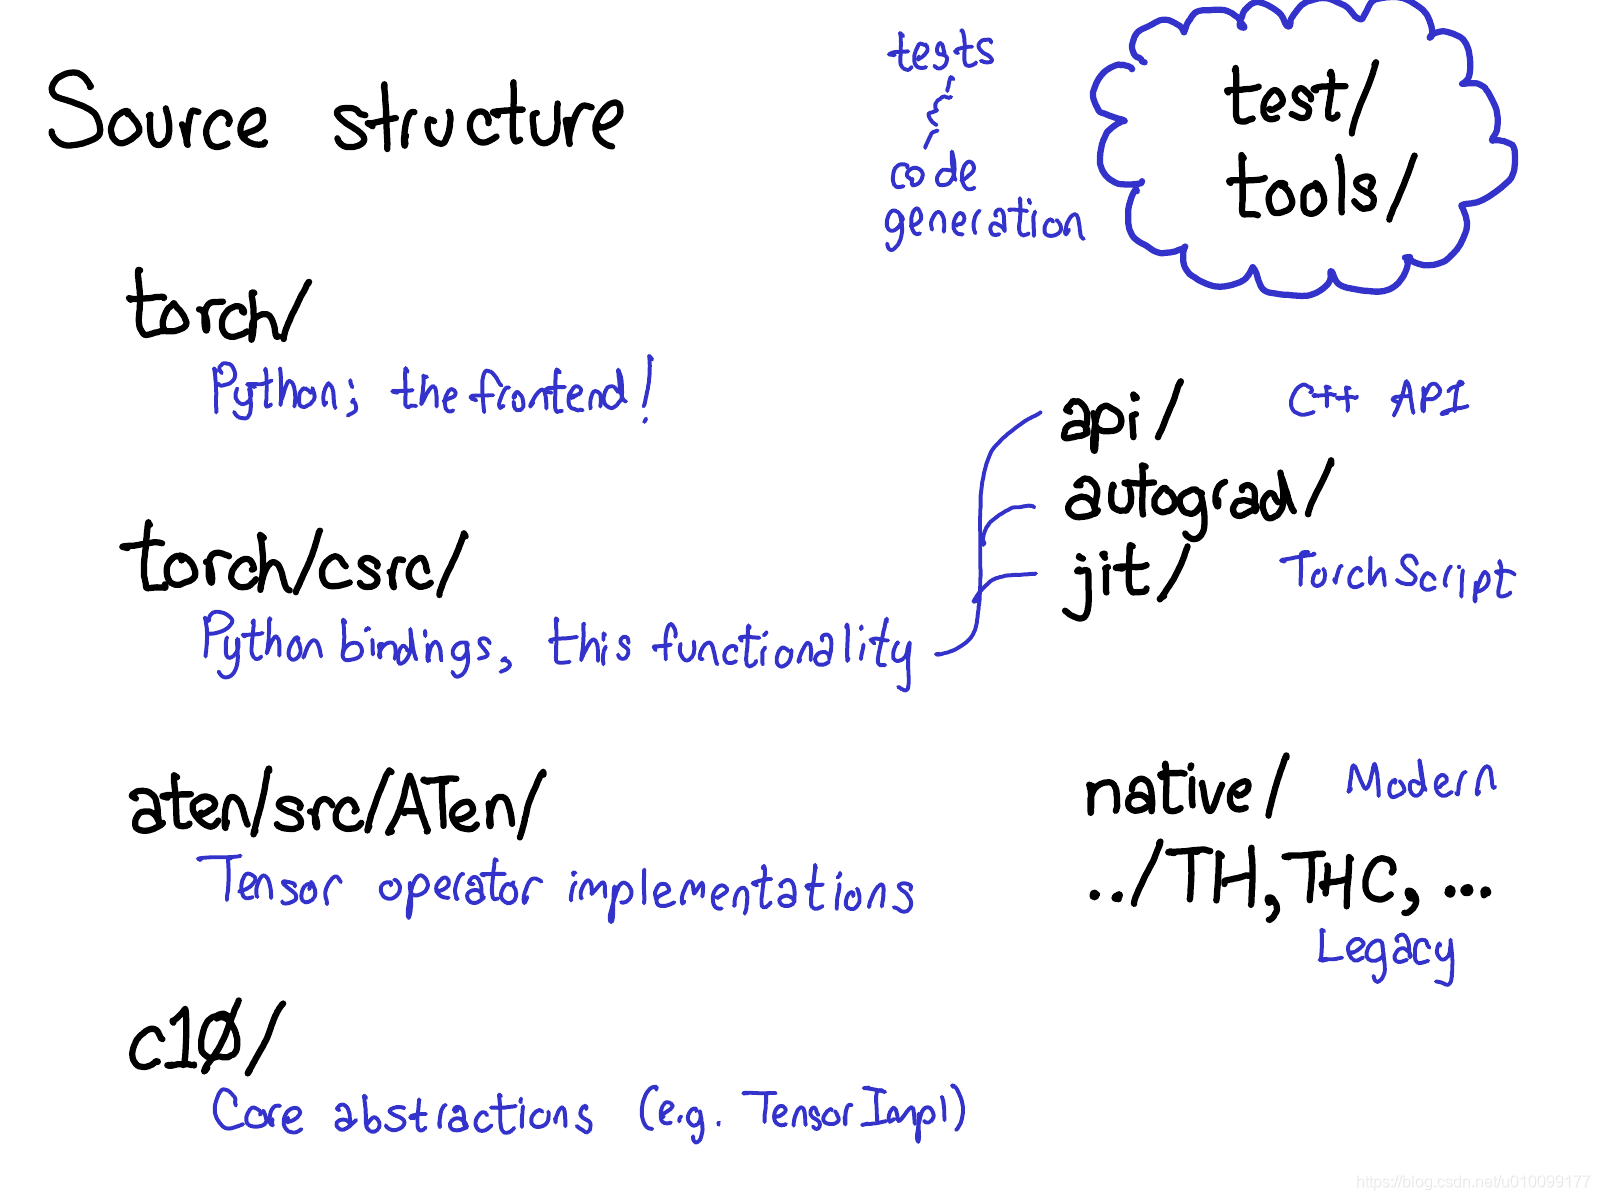 Source structure
tests
code
generation
test/
tools/
torch/
Python; the frontend!
torch/csrc/
Python bindings, this functionality
api/ C++ API
autograd/
jit/ TorchScript
aten/src/ATen/
Tensor operator implementations
native/ Modern
../TH, THC, ...
Legacy
c10/
Core abstractions (e.g. TensorImpl)
https://blog.csdn.net/u010099177